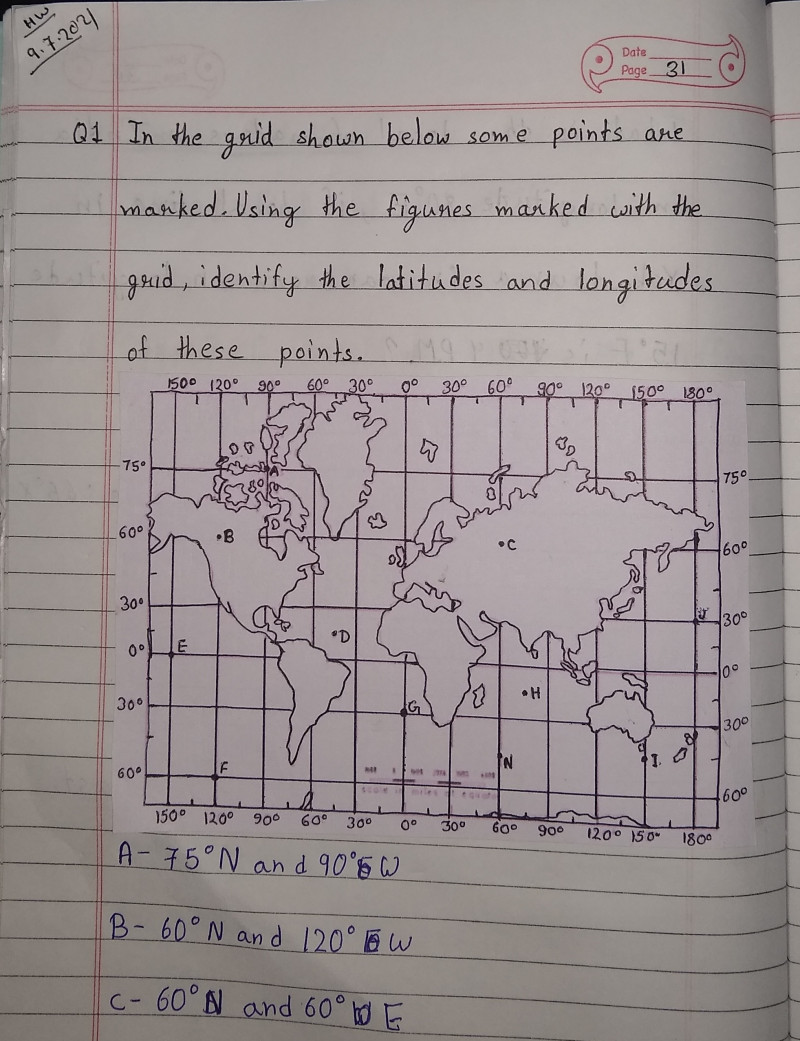 HW
9.7.2021
Date
Page 31
Q1 In the grid shown below some points are
marked. Using the figures marked with the
grid, identify the latitudes and longitudes
of these points.
150° 120° 90° 60° 30° 0° 30° 60° 90° 120° 150° 180°
75° A 75°
60° B C 60°
30° D J 30°
0° E 0°
30° G H 30°
N I.
60° F 60°
150° 120° 90° 60° 30° 0° 30° 60° 90° 120° 150° 180°
A- 75°N and 90° W
B- 60°N and 120° W
C- 60°N and 60° E